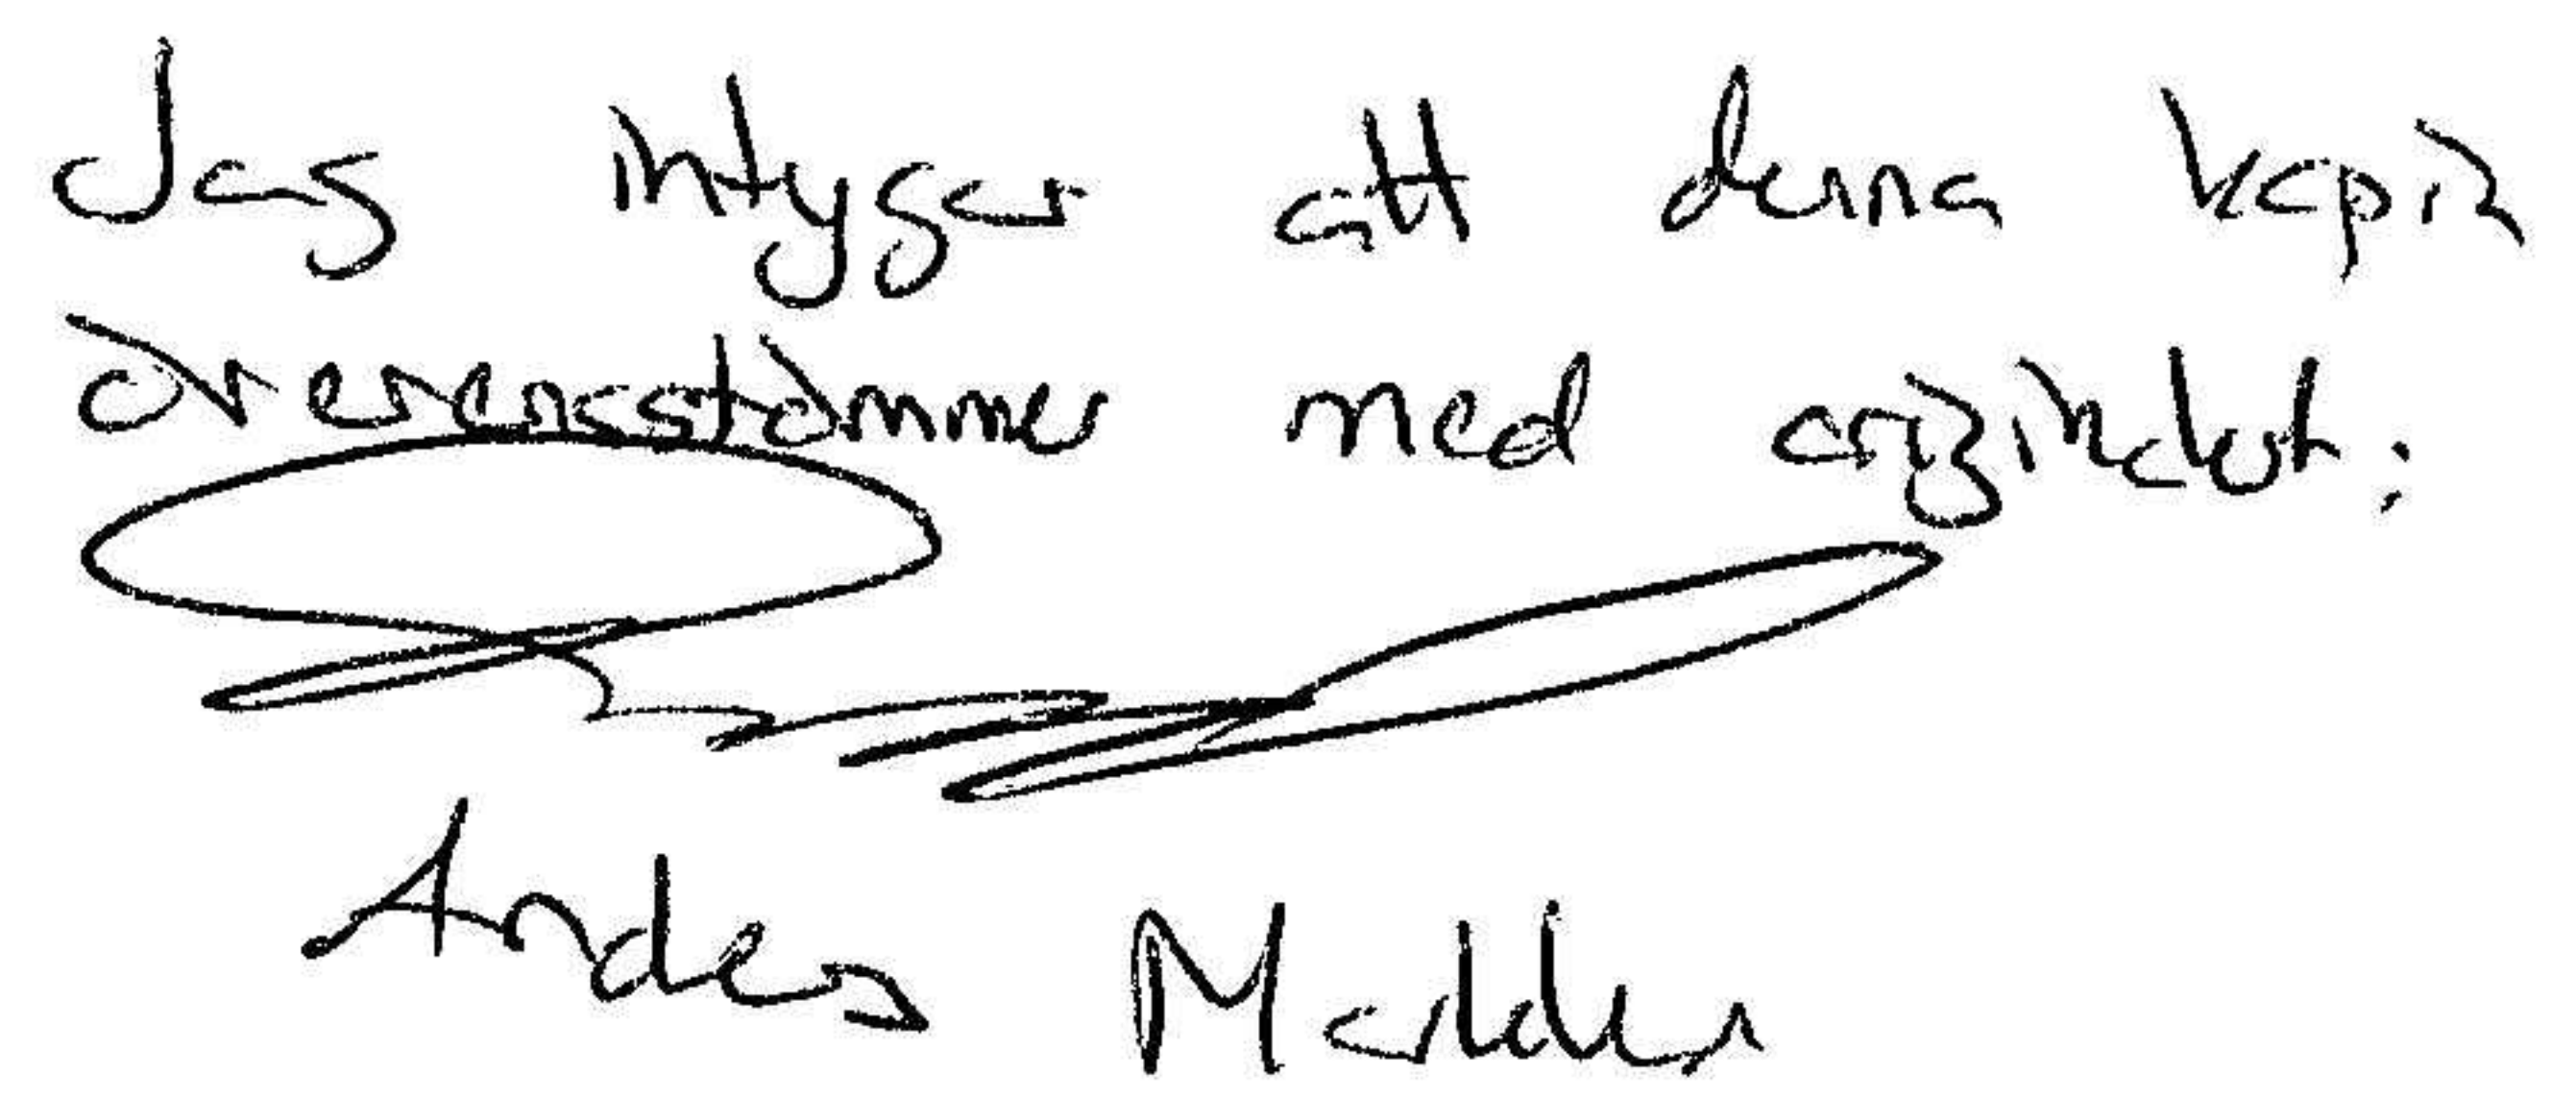 Jag intygar att denna kopia
överensstämmer med originalet:
Anders